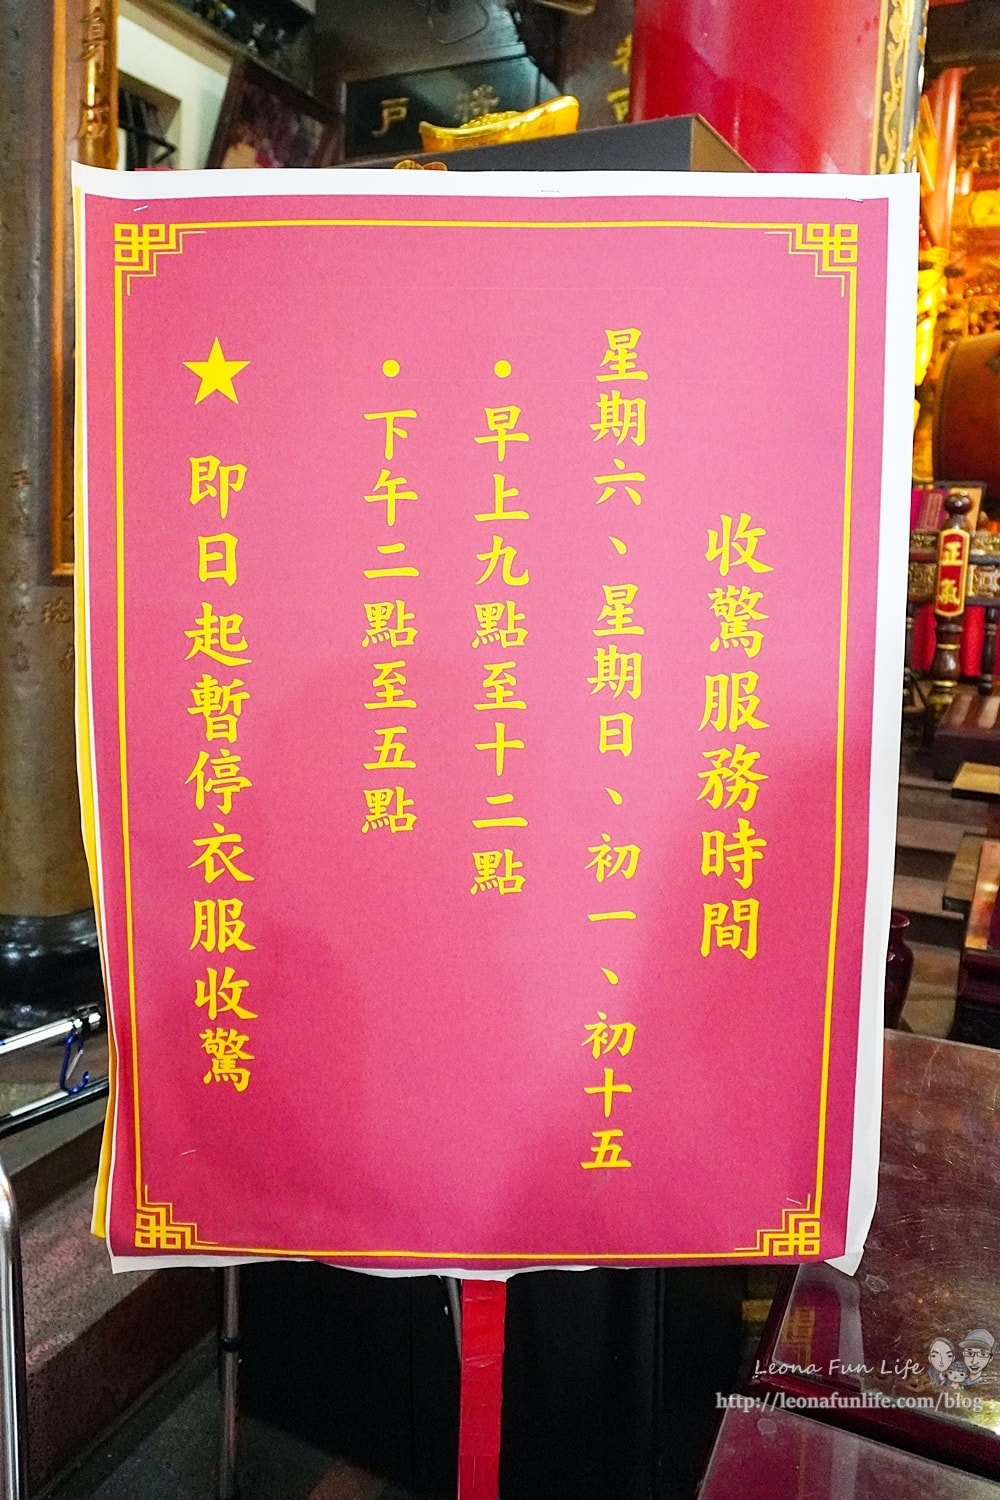 收驚服務時間
星期六、星期日、初一、初十五
•早上九點至十二點
•下午二點至五點
★即日起暫停衣服收驚
正氣
Leona Fun Life
http://leonafunlife.com/blog